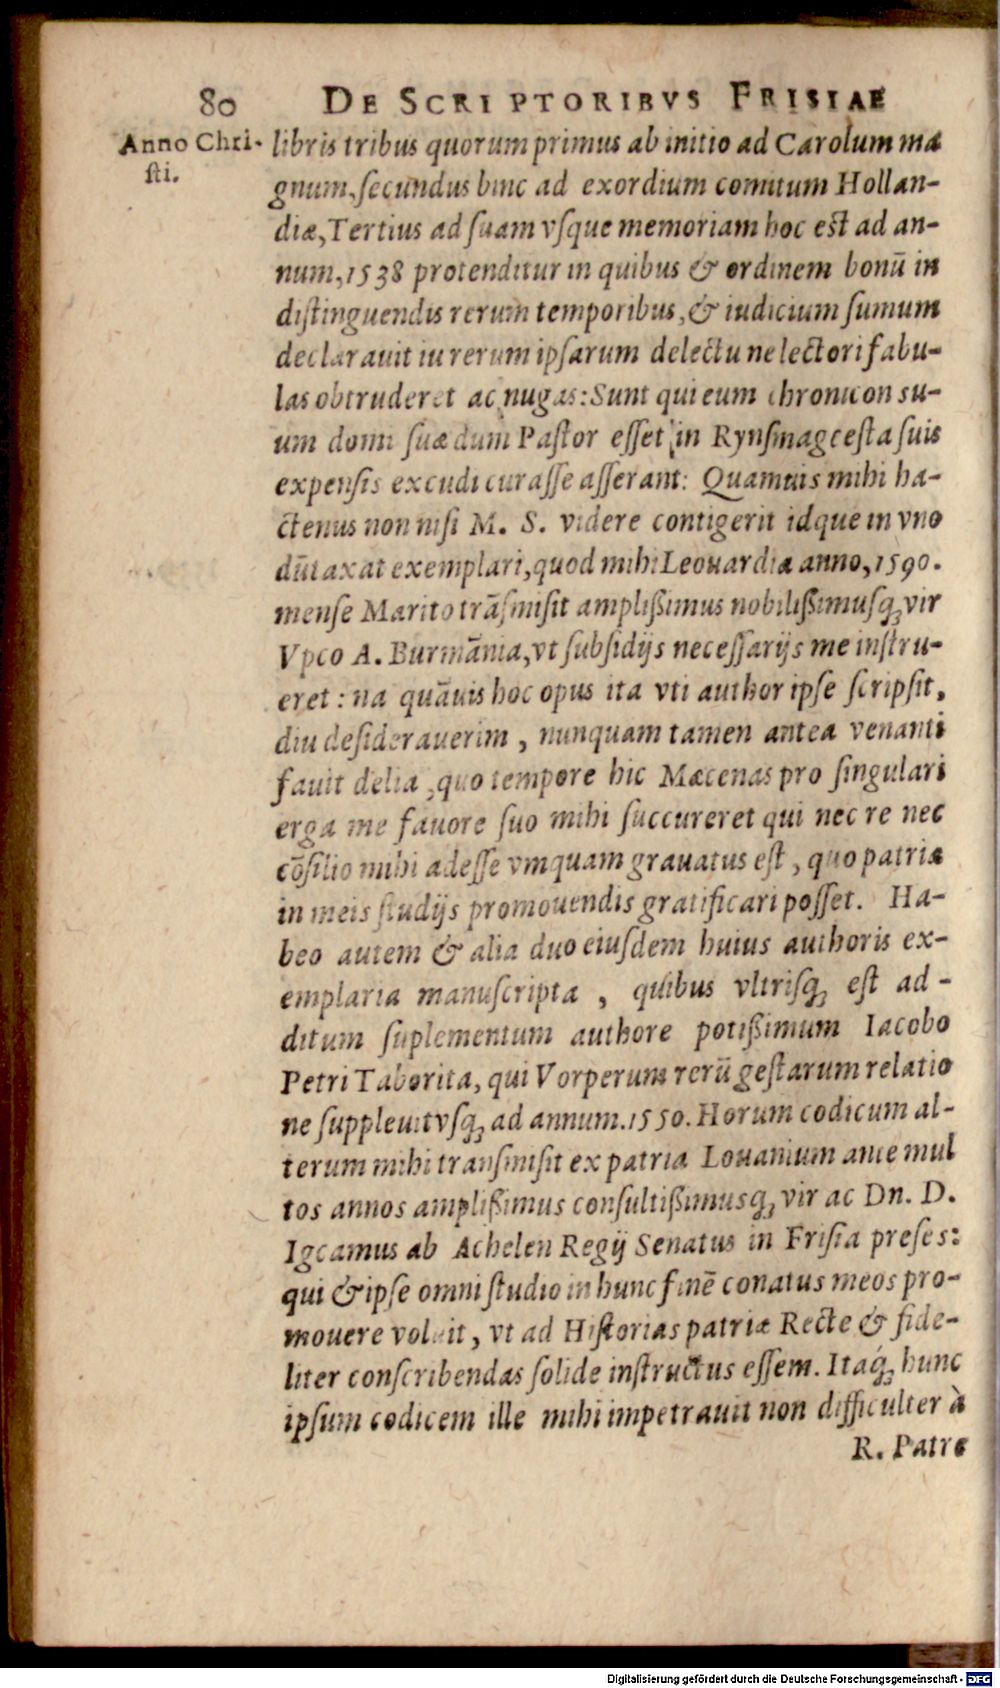 80 DE SCRIPTORIBVS FRISIAE
Anno Chri-
sti.
libris tribus quorum primus ab initio ad Carolum ma
gnum, ſecundus hinc ad exordium comitum Hollan-
diæ, Tertius ad ſuam vſque memoriam hoc eſt ad an-
num, 1538 protenditur in quibus & ordinem bonū in
diſtinguendis rerum temporibus, & iudicium ſumum
declaravit iu rerum ipſarum delectu ne lectori fabu-
las obtruderet ac nugas: Sunt qui eum chronicon su-
um domi ſuæ dum Paſtor eſſet in Rynſmageeſta ſuis
expenſis excudi curaſſe aſſerant: Quamuis mihi ha-
ctenus non niſi M. S. videre contigerit idque in vno
dūtaxat exemplari, quod mihi Leouardia anno, 1590.
menſe Marito trāſmiſit ampliſſimus nobiliſſimusq; vir
Vpco A. Burmānia, vt ſubſidijs neceſſarijs me inſtru-
eret: na quāuis hoc opus ita vti author ipſe ſcripſit,
diu deſideraverim, nunquam tamen antea venanti
favit delia, quo tempore hic Mæcenas pro ſingulari
erga me favore ſuo mihi ſuccureret qui nec re nec
cōſilio mihi adeſſe vmquam grauatus eſt, quo patriæ
in meis ſtudijs promouendis gratificari poſſet. Ha-
beo autem & alia duo eiuſdem huius authoris ex-
emplaria manuſcripta, quibus vltriſq; eſt ad-
ditum ſuplementum authore potiſſimum Iacobo
Petri Taborita, qui Vorperum rerū geſtarum relatio
ne ſuppleuit vſq; ad annum. 1550. Horum codicum al-
terum mihi tranſmiſit ex patria Louanium ante mul
tos annos ampliſſimus conſultiſſimusq; vir ac Dn. D.
Igcamus ab Achelen Regij Senatus in Friſia preſes:
qui & ipſe omni ſtudio in hunc finē conatus meos pro-
movere voluit, vt ad Hiſtorias patriæ Recte & fide-
liter conſcribendas ſolide inſtructus eſſem. Itaq́; hunc
ipſum codicem ille mihi impetravit non difficulter à
R. Patre
Digitalisierung gefördert durch die Deutsche Forschungsgemeinschaft - DFG